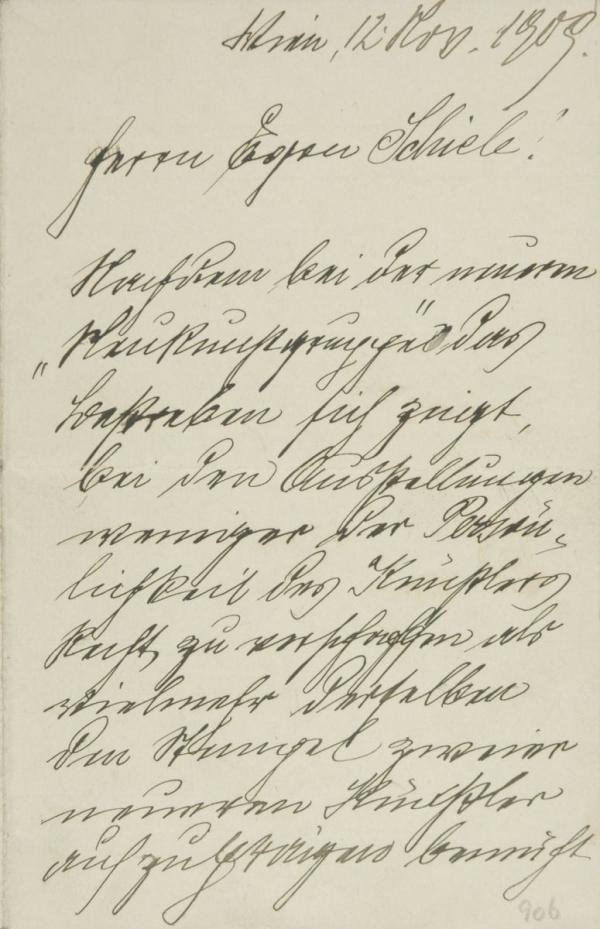 Wien, 12. Nov. 1909.
Herrn Egon Schiele!
Nachdem bei der neueren
„Neukunstgruppe" das
Bestreben sich zeigt,
bei den Ausstellungen
weniger der Persön-
lichkeit des Künstlers
Recht zu verschaffen als
vielmehr derselben
den Stempel zweier
neueren Künstler
aufzuprägen bemüht
906